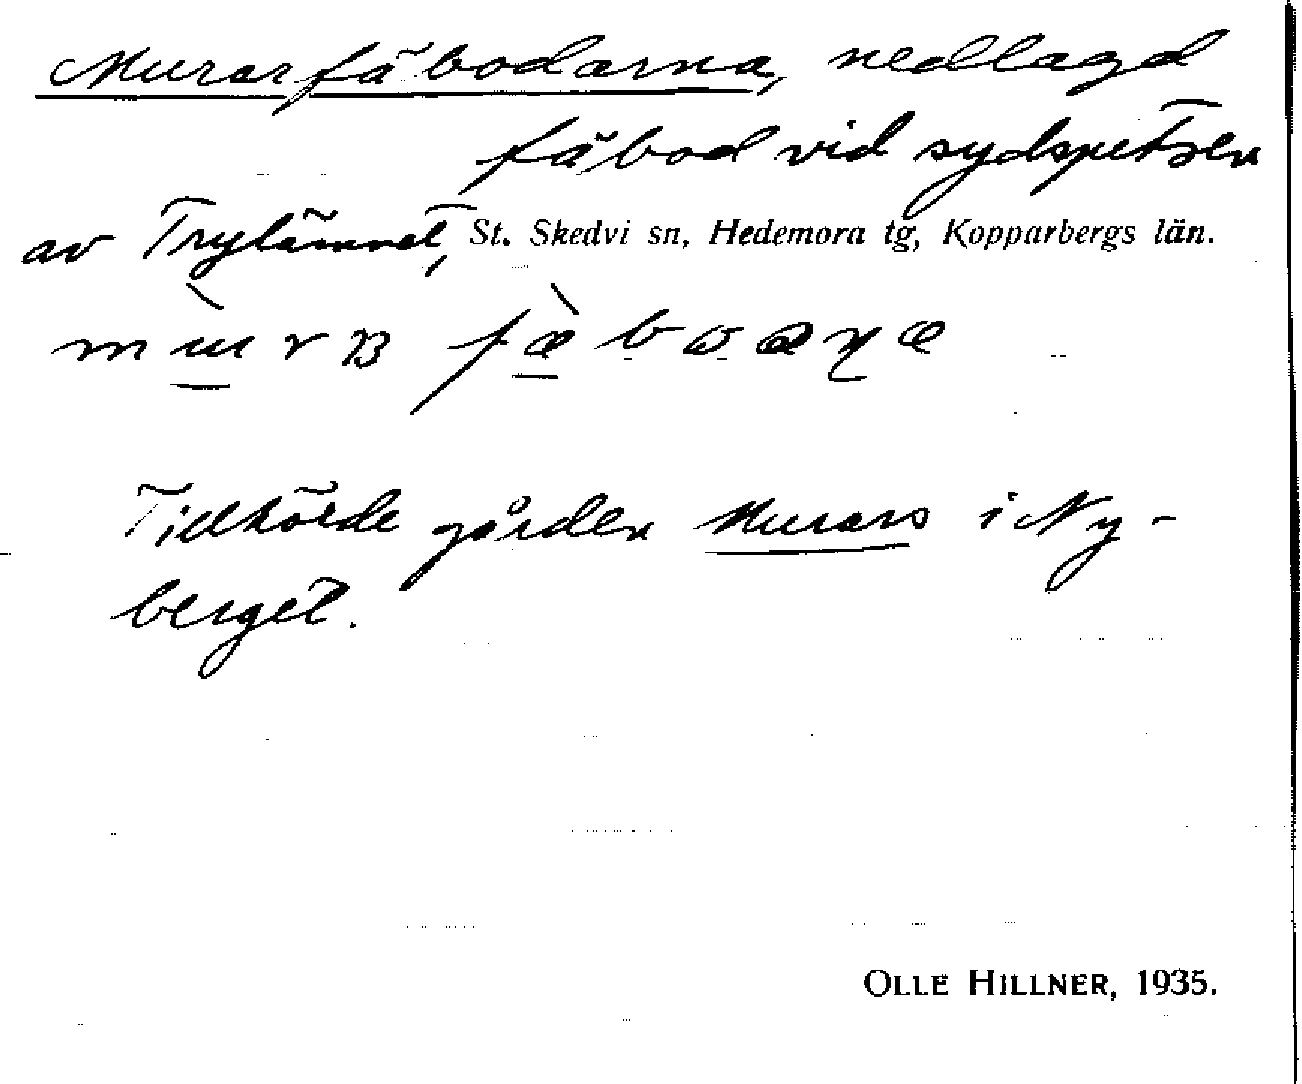 Murarfäbodarna, nedlagd
fäbod vid sydspetsen
av Trytämnet, St. Skedvi sn, Hedemora tg, Kopparbergs län.
Tillhörde gården Murars i Ny-
berget.
OLLE HILLNER, 1935.